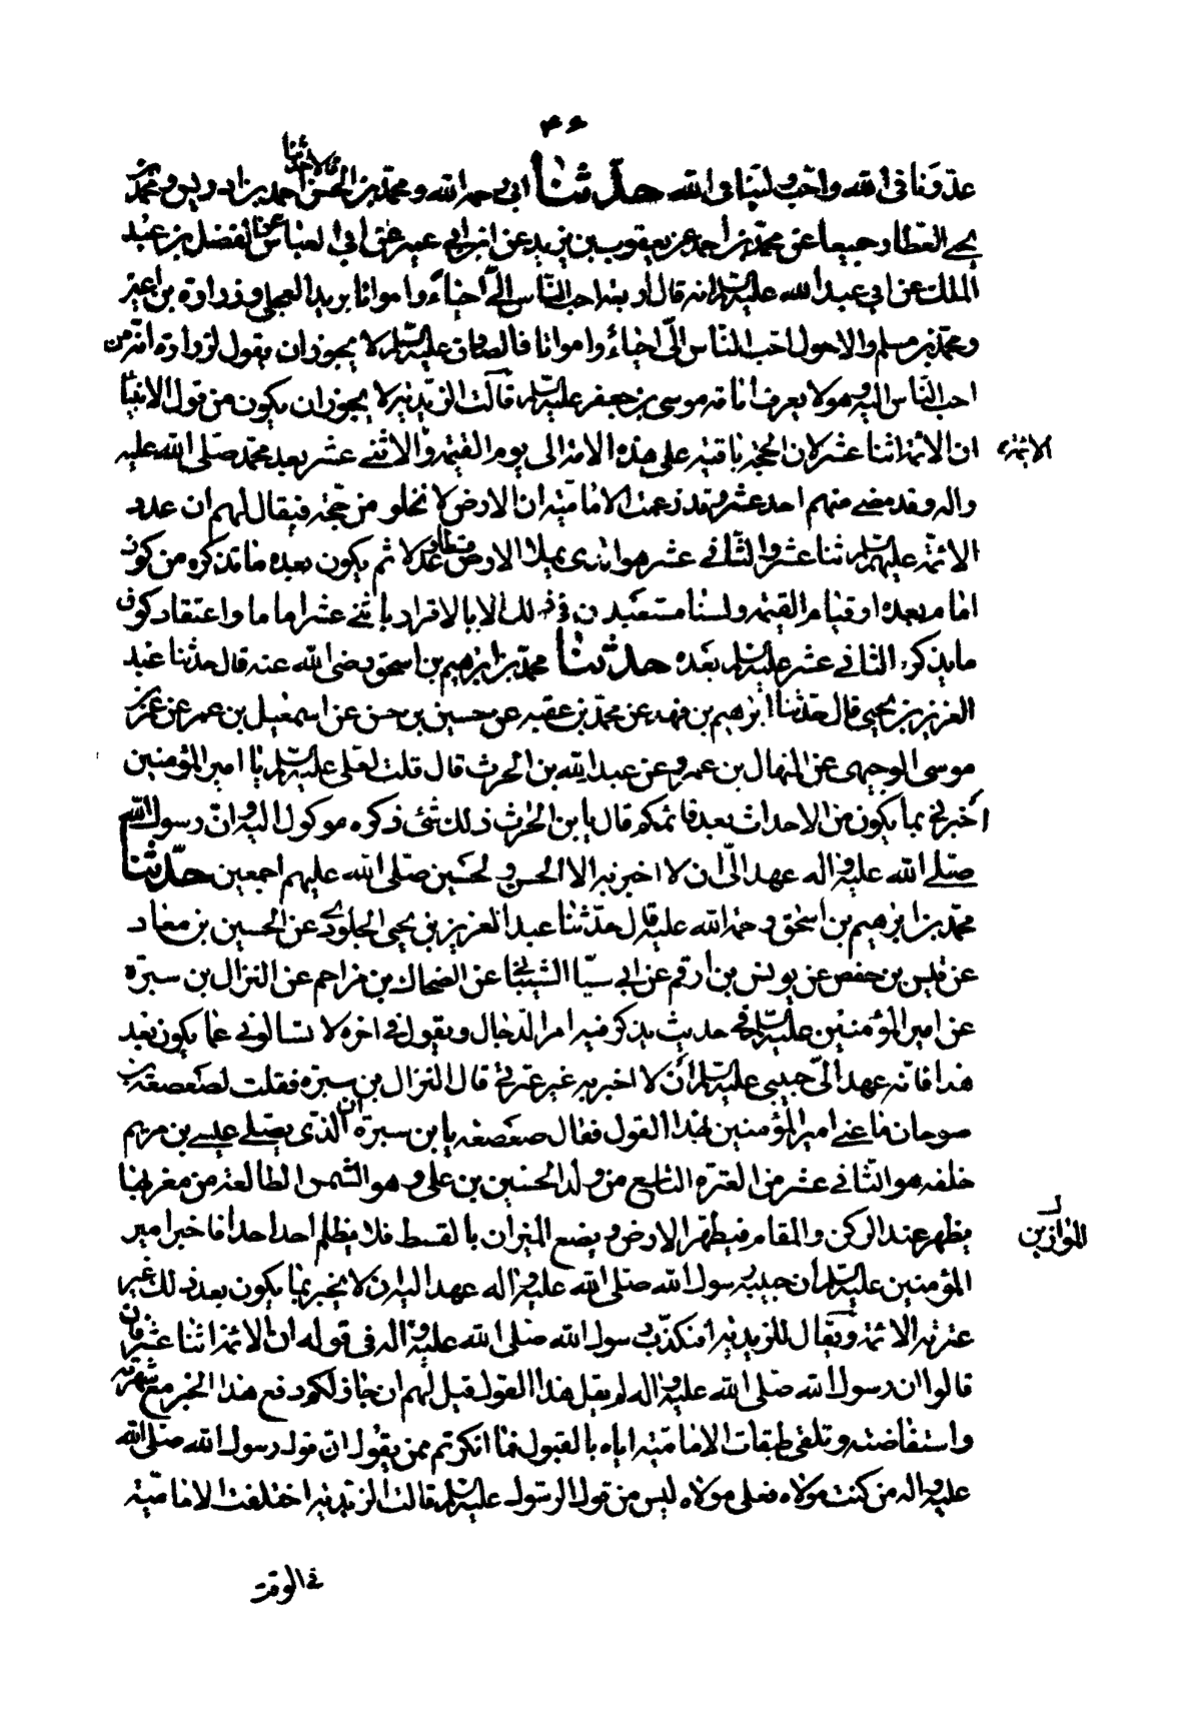 ٤٦
عدونا فى الله واحب ولينا فى الله حدثنا ابى رحمه الله ومحمد بن الحسن قالا حدثنا احمد بن ادريس ومحمد بن
يحيى العطار جميعا عن محمد بن احمد عن يعقوب بن يزيد عن ابن ابى عمير عن ابى العباس الفضل بن عبد
الملك عن ابى عبد الله عليه السلم انه قال اربعة احب الناس الىّ احياءً وامواتا بريد العجلى وزرارة بن اعين
ومحمد بن مسلم والاحول احب الناس الىّ احياءً وامواتا فالصادق عليه السلم لا يجوز ان يقول لزرارة انه من
احب الناس اليه وهو لا يعرف امامة موسى بن جعفر عليه السلم قالت الزيدية لا يجوز ان يكون من قول الانبياء
ان الائمة اثنا عشر لان الحجة باقية على هذه الامة الى يوم القيمة والاثنى عشر بعد محمد صلى الله عليه
الائمة
واله وقد مضى منهم احد عشر وقد زعمت الامامية ان الارض لا تخلو من حجة فيقال لهم ان عدد
الائمة عليهم السلم اثنا عشر والثانى عشر هو الذى يملا الارض قسطا وعدلا ثم يكون بعده ما تذكره من كون
امام بعده او قيام القيمة ولسنا مستعبدين فى ذلك الا بالاقرار باثنى عشر اماما واعتقاد كون
ما يذكره الثانى عشر عليه السلم بعده حدثنا محمد بن ابرهيم بن اسحق رضى الله عنه قال حدثنا عبد
العزيز بن يحيى قال حدثنا ابرهيم بن فهد عن محمد بن عقبه عن حسين بن حسن عن اسمعيل بن عمر عن عمر بن
موسى الوجيهى عن المنهال بن عمرو عن عبد الله بن الحرث قال قلت لعلى عليه السلم يا امير المؤمنين
اخبرنى بما يكون من الاحداث بعد قائمكم قال يا بن الحرث ذلك شئ ذكره موكول اليه وان رسول الله
صلى الله عليه واله عهد الىّ ان لا اخبر به الا الحسن والحسين صلى الله عليهم اجمعين حدثنا
محمد بن ابرهيم بن اسحق رحمة الله عليه قال حدثنا عبد العزيز بن يحيى الجلودى عن الحسين بن معاد
عن قيس بن حفص عن يونس بن ارقم عن ابى سيار الشيبانى عن الضحاك بن مزاحم عن النزال بن سبرة
عن امير المؤمنين عليه السلم فى حديث يذكر فيه امر الدجال ويقول فى اخره لا تسالونى عما يكون بعد
هذا فانه عهد الىّ حبيبى عليه السلم ان لا اخبر به غير عترتى قال النزال بن سبرة فقلت لصعصعة بن
صوحان ما عنى امير المؤمنين بهذا القول فقال صعصعه يا بن سبرة ان الذى يصلى عيسى بن مريم
خلفه هو الثانى عشر من العترة التاسع من ولد الحسين بن على وهو الشمس الطالعة من مغربها
يظهر عند الركن والمقام فيطهر الارض ويضع الميزان بالقسط فلا يظلم احد احدا فاخبر امير
الموازين
المؤمنين عليه السلم ان حبيبه رسول الله صلى الله عليه واله عهد اليه ان لا يخبر بما يكون بعد ذلك غير
عترته الائمة ويقال للزيدية افنكذب رسول الله صلى الله عليه واله فى قوله ان الائمة اثنا عشر فان
قالوا ان رسول الله صلى الله عليه واله لم يقل هذا القول قيل لهم ان جاز لكم دفع هذا الخبر مع شهرته
واستفاضته وتلقى طبقات الامامية اياه بالقبول فما انكرتم ممن يقول ان قول رسول الله صلى الله
عليه واله من كنت مولاه فعلى مولاه ليس من قول الرسول عليه السلم قالت الزيدية اختلفت الامامية
فى الوقت